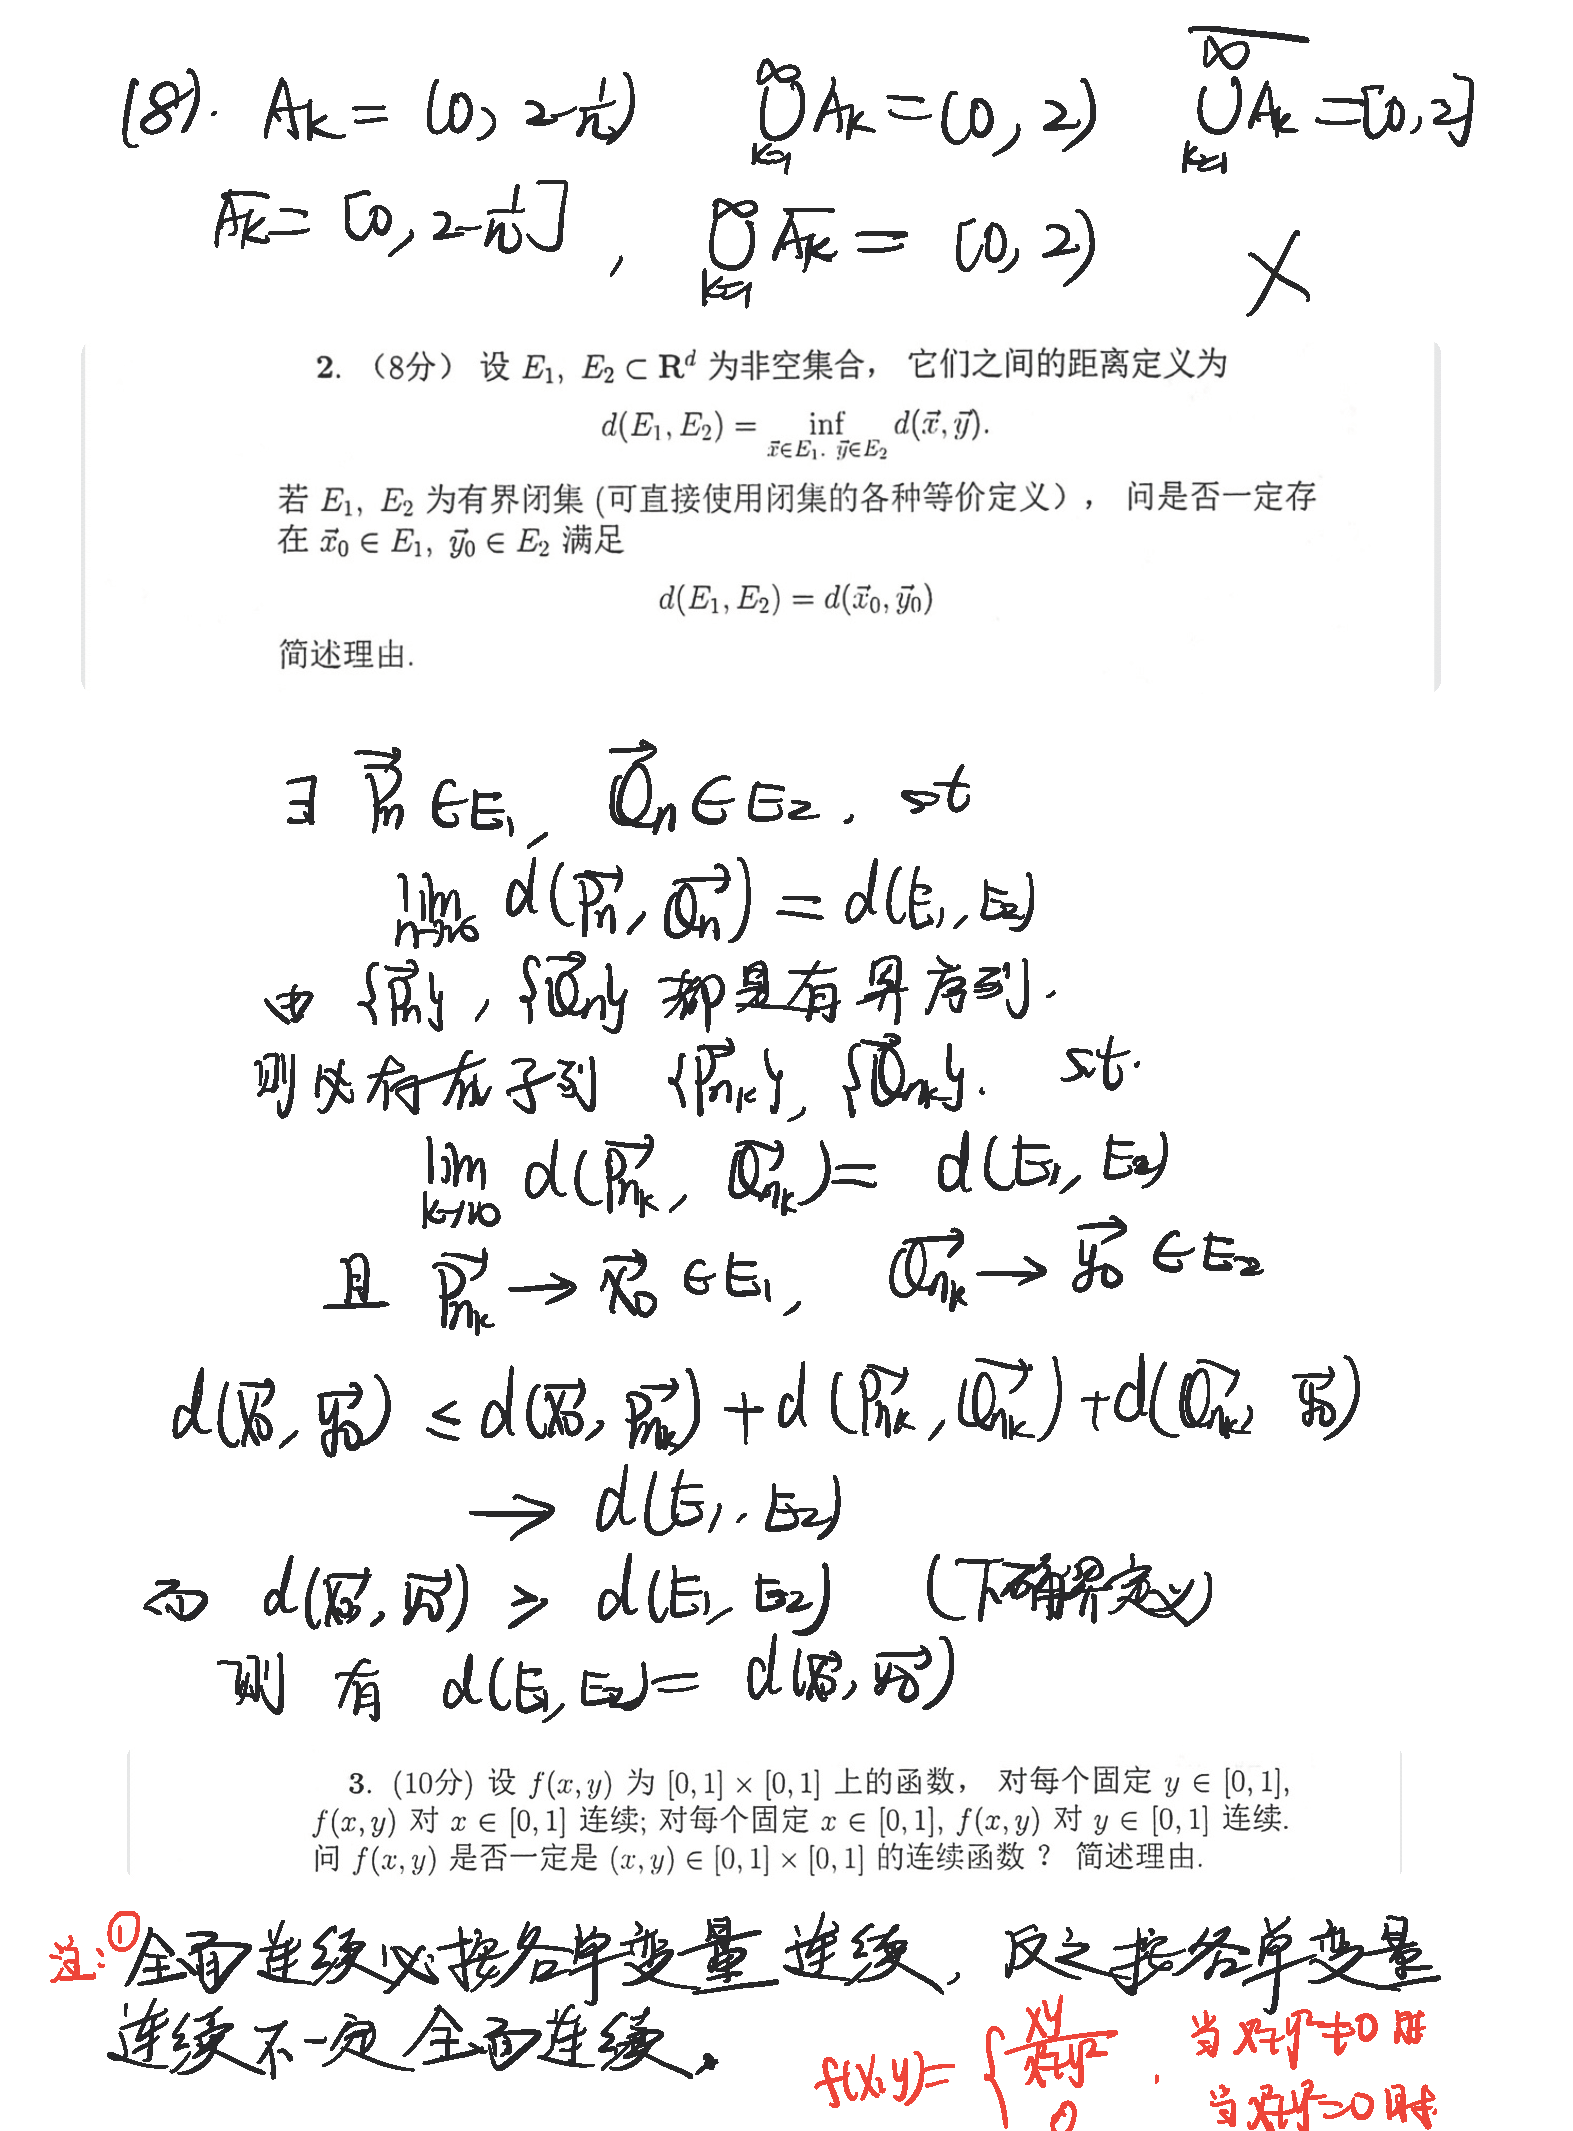 (8). A_k = (0, 2-1/n) ∞∪k=1 A_k = (0, 2) \overline{∞∪k=1 A_k} = [0, 2]
\overline{A_k} = [0, 2-1/n], ∞∪k=1 \overline{A_k} = [0, 2) ×
2. （8分） 设 E₁, E₂ ⊂ R^d 为非空集合， 它们之间的距离定义为
d(E₁, E₂) = inf_{x⃗∈E₁, y⃗∈E₂} d(x⃗, y⃗).
若 E₁, E₂ 为有界闭集 (可直接使用闭集的各种等价定义）， 问是否一定存
在 x⃗₀ ∈ E₁, y⃗₀ ∈ E₂ 满足
d(E₁, E₂) = d(x⃗₀, y⃗₀)
简述理由.
∃ P⃗n ∈ E₁, Q⃗n ∈ E₂. st
lim_{n→∞} d(P⃗n, Q⃗n) = d(E₁, E₂)
由 {P⃗n}, {Q⃗n} 都是有界序列.
则必存在子列 {P⃗nk}, {Q⃗nk}. st.
lim_{k→∞} d(P⃗nk, Q⃗nk) = d(E₁, E₂)
且 P⃗nk → x⃗₀ ∈ E₁, Q⃗nk → y⃗₀ ∈ E₂
d(x⃗₀, y⃗₀) ≤ d(x⃗₀, P⃗nk) + d(P⃗nk, Q⃗nk) + d(Q⃗nk, y⃗₀)
→ d(E₁, E₂)
而 d(x⃗₀, y⃗₀) ≥ d(E₁, E₂) (下确界定义)
则有 d(E₁, E₂) = d(x⃗₀, y⃗₀)
3. (10分) 设 f(x, y) 为 [0, 1] × [0, 1] 上的函数， 对每个固定 y ∈ [0, 1],
f(x, y) 对 x ∈ [0, 1] 连续; 对每个固定 x ∈ [0, 1], f(x, y) 对 y ∈ [0, 1] 连续.
问 f(x, y) 是否一定是 (x, y) ∈ [0, 1] × [0, 1] 的连续函数？ 简述理由.
注: ① 全面连续必按各单变量连续, 反之按各单变量
连续不一定全面连续.
f(x, y) = { xy/(x²+y²), 当 x²+y²≠0 时
0 当 x²+y²=0 时.